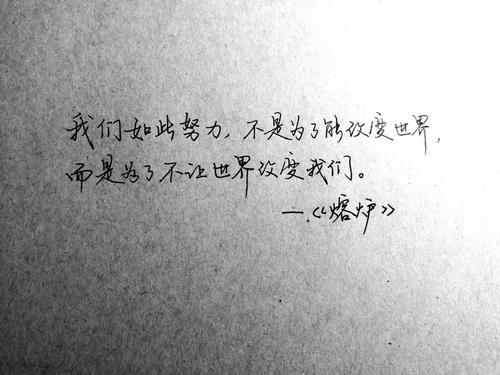 我们如此努力，不是为了能改变世界，
而是为了不让世界改变我们。
—《熔炉》